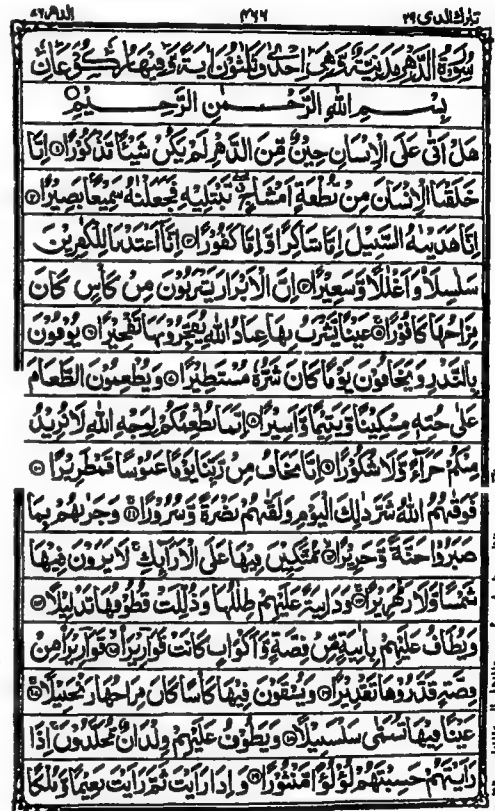 تبارك الذى ٢٩ ٤٦٦ الدهر ٧٦
سُوْرَةُ الدَّهْرِ مَدَنِيَّةٌ وَّهِىَ اِحْدٰى وَثَلٰثُوْنَ اٰيَةً وَّفِيْهَا رُكُوْعَانِ
بِسْمِ اللهِ الرَّحْمٰنِ الرَّحِيْمِ
هَلْ اَتٰى عَلَى الْاِنْسَانِ حِيْنٌ مِّنَ الدَّهْرِ لَمْ يَكُنْ شَيْئًا مَّذْكُوْرًا ۝١ اِنَّا
خَلَقْنَا الْاِنْسَانَ مِنْ نُّطْفَةٍ اَمْشَاجٍ نَّبْتَلِيْهِ فَجَعَلْنٰهُ سَمِيْعًۢا بَصِيْرًا ۝٢
اِنَّا هَدَيْنٰهُ السَّبِيْلَ اِمَّا شَاكِرًا وَّاِمَّا كَفُوْرًا ۝٣ اِنَّآ اَعْتَدْنَا لِلْكٰفِرِيْنَ
سَلٰسِلَا۟ وَاَغْلٰلًا وَّسَعِيْرًا ۝٤ اِنَّ الْاَبْرَارَ يَشْرَبُوْنَ مِنْ كَاْسٍ كَانَ
مِزَاجُهَا كَافُوْرًا ۝٥ عَيْنًا يَّشْرَبُ بِهَا عِبَادُ اللهِ يُفَجِّرُوْنَهَا تَفْجِيْرًا ۝٦ يُوْفُوْنَ
بِالنَّذْرِ وَيَخَافُوْنَ يَوْمًا كَانَ شَرُّهٗ مُسْتَطِيْرًا ۝٧ وَيُطْعِمُوْنَ الطَّعَامَ
عَلٰى حُبِّهٖ مِسْكِيْنًا وَّيَتِيْمًا وَّاَسِيْرًا ۝٨ اِنَّمَا نُطْعِمُكُمْ لِوَجْهِ اللهِ لَا نُرِيْدُ
مِنْكُمْ جَزَآءً وَّلَا شُكُوْرًا ۝٩ اِنَّا نَخَافُ مِنْ رَّبِّنَا يَوْمًا عَبُوْسًا قَمْطَرِيْرًا ۝١٠
فَوَقٰىهُمُ اللهُ شَرَّ ذٰلِكَ الْيَوْمِ وَلَقّٰىهُمْ نَضْرَةً وَّسُرُوْرًا ۝١١ وَجَزٰىهُمْ بِمَا
صَبَرُوْا جَنَّةً وَّحَرِيْرًا ۝١٢ مُّتَّكِـِٕيْنَ فِيْهَا عَلَى الْاَرَآئِكِ لَا يَرَوْنَ فِيْهَا
شَمْسًا وَّلَا زَمْهَرِيْرًا ۝١٣ وَدَانِيَةً عَلَيْهِمْ ظِلٰلُهَا وَذُلِّلَتْ قُطُوْفُهَا تَذْلِيْلًا ۝١٤
وَيُطَافُ عَلَيْهِمْ بِاٰنِيَةٍ مِّنْ فِضَّةٍ وَّاَكْوَابٍ كَانَتْ قَوَارِيْرَا۟ ۝١٥ قَوَارِيْرَا۟ مِنْ
فِضَّةٍ قَدَّرُوْهَا تَقْدِيْرًا ۝١٦ وَيُسْقَوْنَ فِيْهَا كَاْسًا كَانَ مِزَاجُهَا زَنْجَبِيْلًا ۝١٧
عَيْنًا فِيْهَا تُسَمّٰى سَلْسَبِيْلًا ۝١٨ وَيَطُوْفُ عَلَيْهِمْ وِلْدَانٌ مُّخَلَّدُوْنَ اِذَا
رَاَيْتَهُمْ حَسِبْتَهُمْ لُؤْلُؤًا مَّنْثُوْرًا ۝١٩ وَاِذَا رَاَيْتَ ثَمَّ رَاَيْتَ نَعِيْمًا وَّمُلْكًا